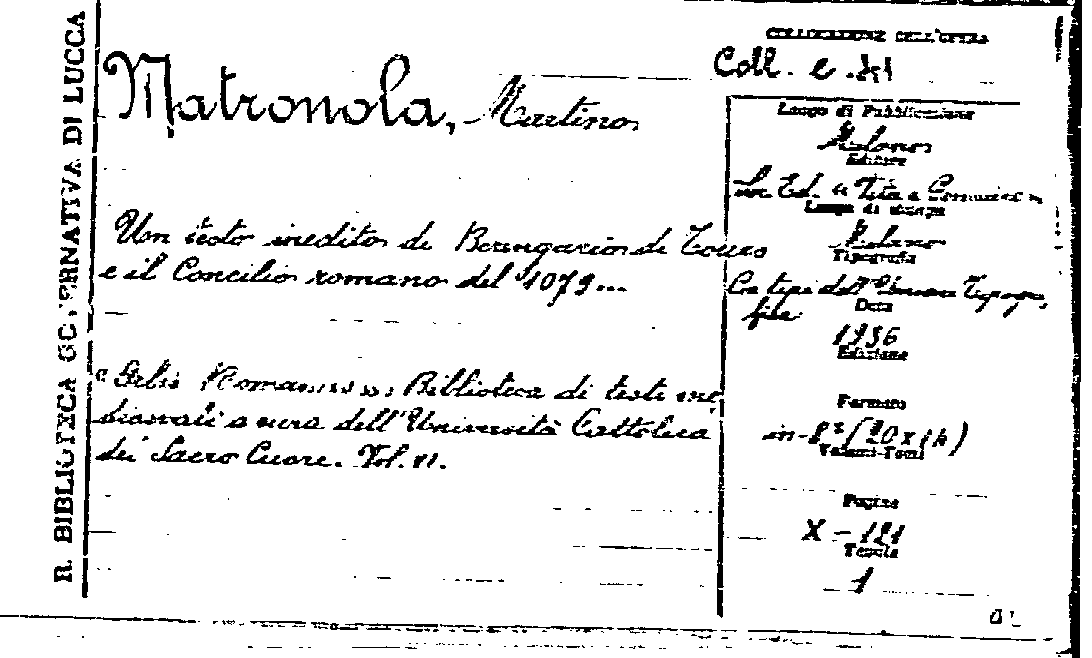 R. BIBLIOTECA GOVERNATIVA DI LUCCA
COLLOCAZIONE DELL'OPERA
Coll. e
Matronola, Martino
Luogo di Pubblicazione
Milano
Editore
Soc. Ed. "Vita e
Luogo di stampa
Milano
Tipografia
Co tipi dell'
Data
1936
Edizione
Un testo inedito di Berengario di Tours
e il Concilio romano del 1079...
Biblioteca di testi me
dioevali a cura dell'Università Cattolica
del Sacro Cuore. Vol. VI.
Formato
in-8°
Volumi-Tomi
Pagine
X - 121
Tavole
1